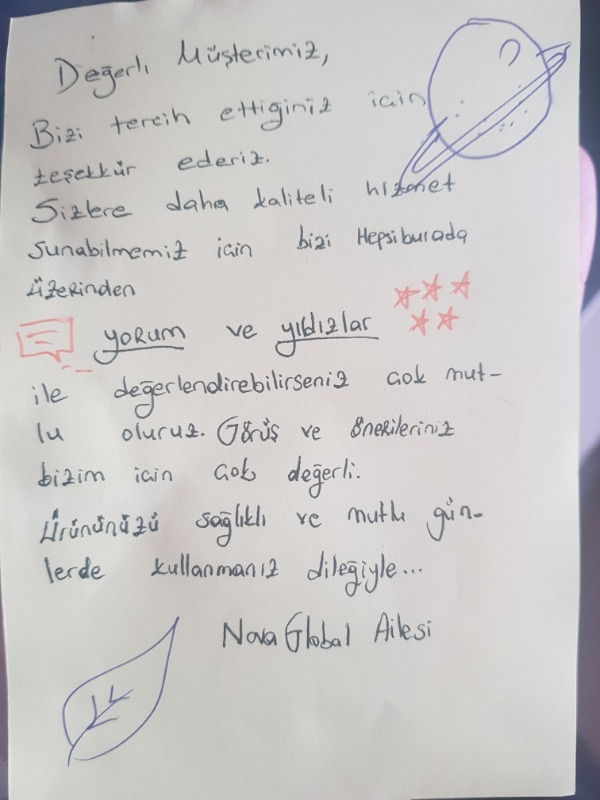 Değerli Müşterimiz,
Bizi tercih ettiginiz icin
teşekkür ederiz.
Sizlere daha kaliteli hizmet
sunabilmemiz icin bizi Hepsiburada
üzerinden
yorum ve yıldızlar
ile değerlendirebilirseniz çok mut-
lu oluruz. Görüş ve önerileriniz
bizim icin çok değerli.
Ürününüzü sağlıklı ve mutlu gün-
lerde kullanmanız dileğiyle...
Nova Global Ailesi